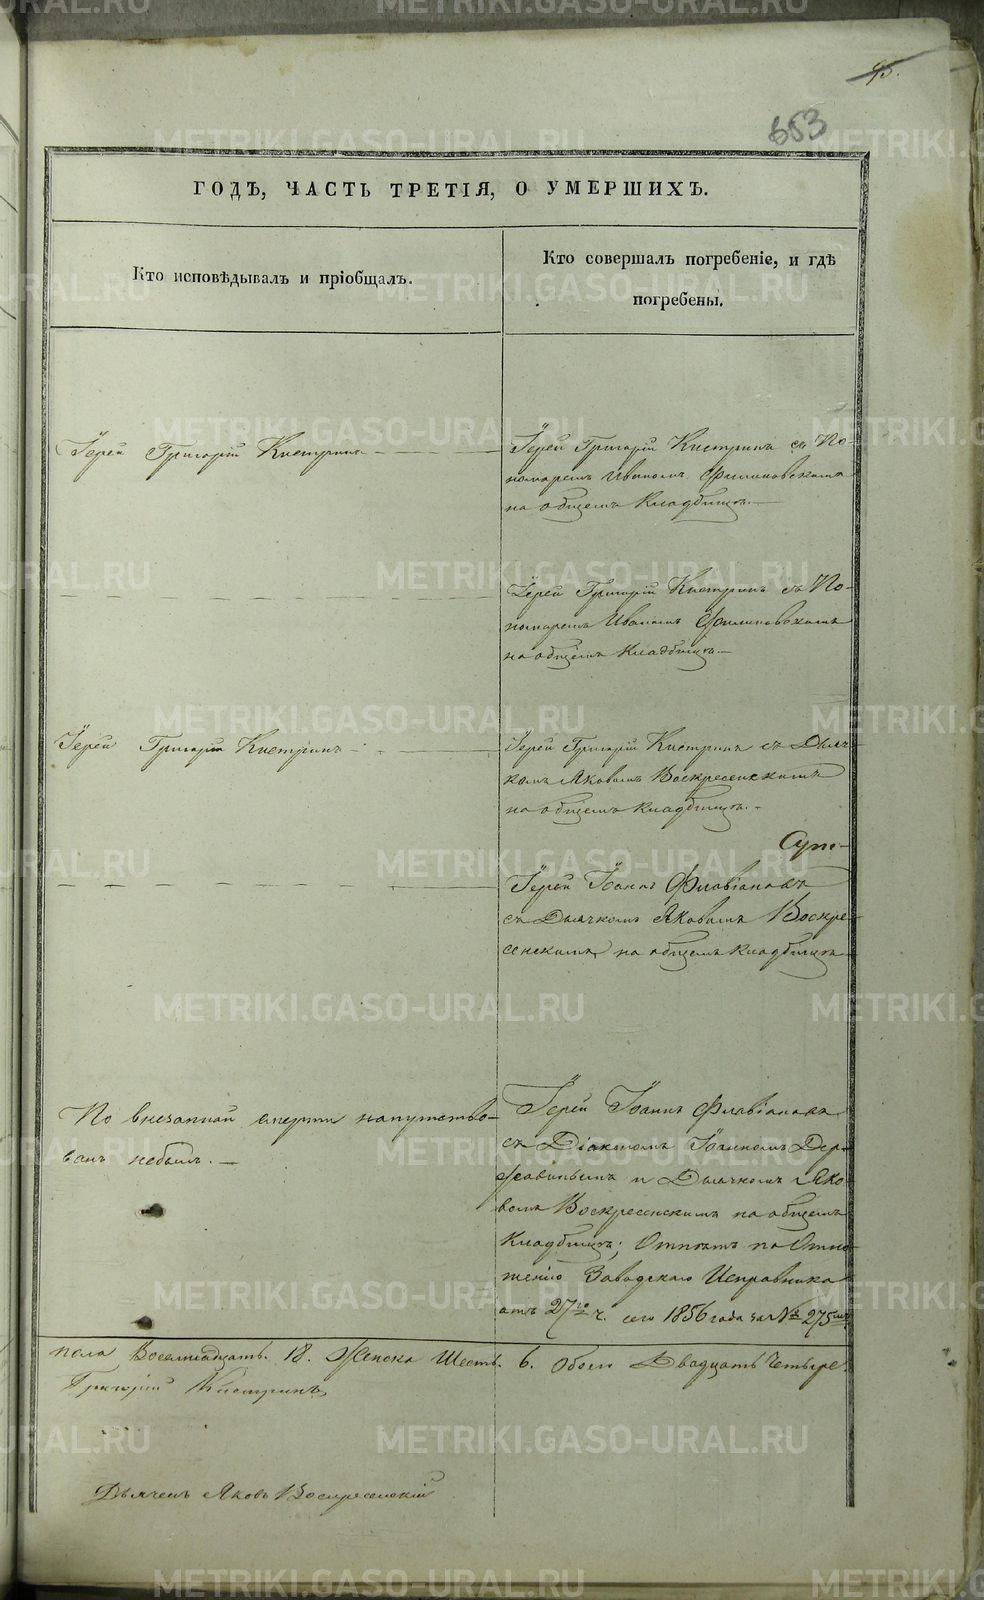 45.
653
ГОДЪ, ЧАСТЬ ТРЕТІЯ, О УМЕРШИХЪ.
Кто исповѣдывалъ и пріобщалъ.
Кто совершалъ погребеніе, и гдѣ
погребены.
Іерей Григорій Кистринъ
Іерей Григорій Кистринъ съ По-
номаремъ Иваномъ Филиповскимъ
на общемъ Кладбищѣ.—
Іерей Григорій Кистринъ съ По-
номаремъ Иваномъ Филиповскимъ
на общемъ Кладбищѣ.—
Іерей Григорій Кистринъ
Іерей Григорій Кистринъ съ Дьяч-
комъ Яковомъ Воскресенскимъ
на общемъ кладбищѣ.—
Іерей Іоаннъ Флавіановъ
съ Дьячкомъ Яковомъ Воскре-
сенскимъ, на общемъ кладбищѣ
По внезапной смерти напутство-
ванъ небылъ.—
Іерей Іоаннъ Флавіановъ
съ Діакономъ Іоанномъ Дер-
жавинымъ и Дьячкомъ Яко-
вомъ Воскресенскимъ на общемъ
Кладбищѣ; Отпѣтъ по Отно-
шенію Заводскаго Исправника
отъ 27го ч. сего 1856 года за № 275мъ.
пола Восемнадцать. 18. Женска Шесть. 6. Обоего Двадцать Четыре.
Григорій Кистринъ
Дьячекъ Яковъ Воскресенскій
METRIKI.GASO-URAL.RU